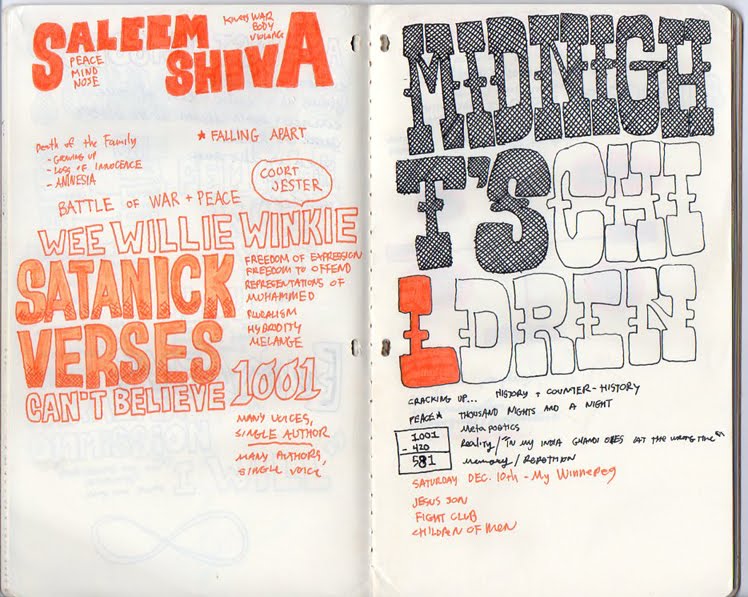 SALEEM
PEACE
MIND
NOSE
KNEES WAR
BODY
VIOLENCE
SHIVA
Death of the Family
- GROWING UP
- LOSS OF INNOCENCE
- AMNESIA
* FALLING APART
COURT
JESTER
BATTLE OF WAR + PEACE
WEE WILLIE WINKIE
SATANICK
VERSES
CAN'T BELIEVE
FREEDOM OF EXPRESSION
FREEDOM TO OFFEND
REPRESENTATIONS OF
MUHAMMED
PLURALISM
HYBRIDITY
MELANGE
1001
MANY VOICES,
SINGLE AUTHOR
MANY AUTHORS,
SINGLE VOICE
MIDNIGH
T'S CHI
LDREN
CRACKING UP... HISTORY + COUNTER-HISTORY
PEACE* THOUSAND NIGHTS AND A NIGHT
Metapoetics
1001
- 420
581
Reality/"In my India Ghandi dies at the wrong time"
memory/Repetition
SATURDAY DEC. 10th - My Winnepeg
JESUS SON
FIGHT CLUB
CHILDREN OF MEN